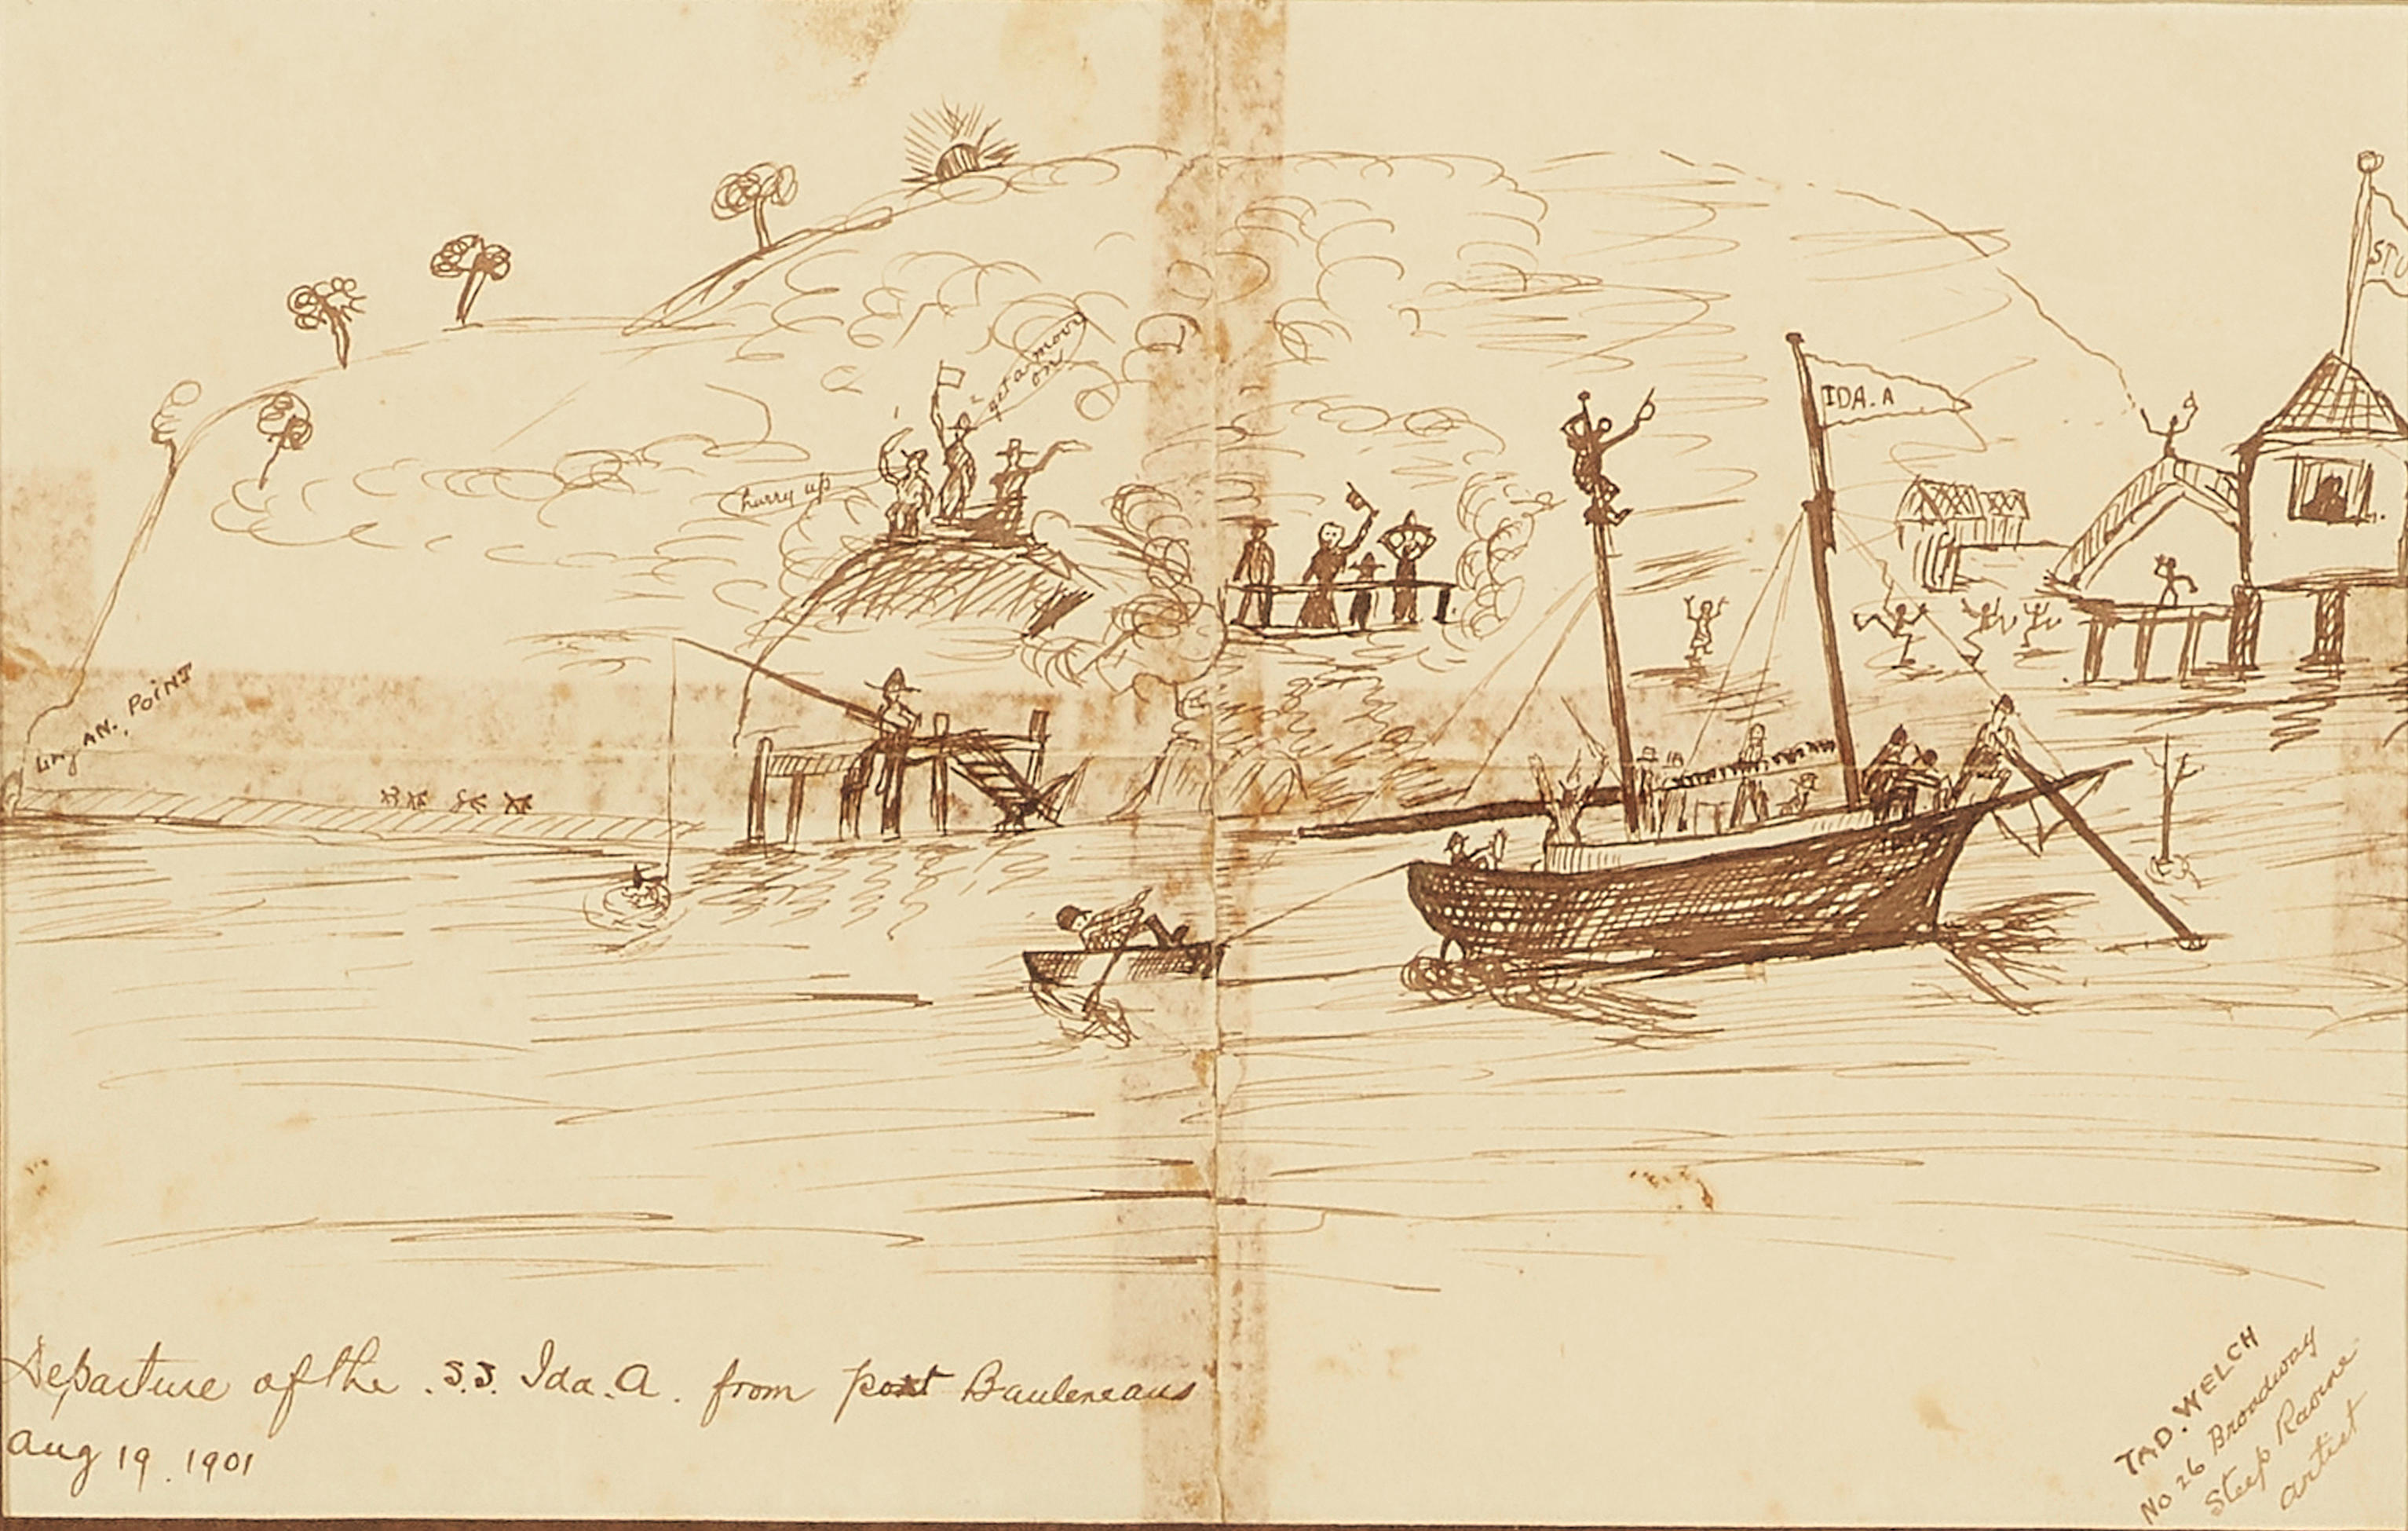 IDA. A
STU
get a move
on
hurry up
POINT
Departure of the S.S. Ida. A. from port Bauleneaus
Aug 19. 1901
TAD. WELCH
No 26 Broadway
Steep Ravine
artist